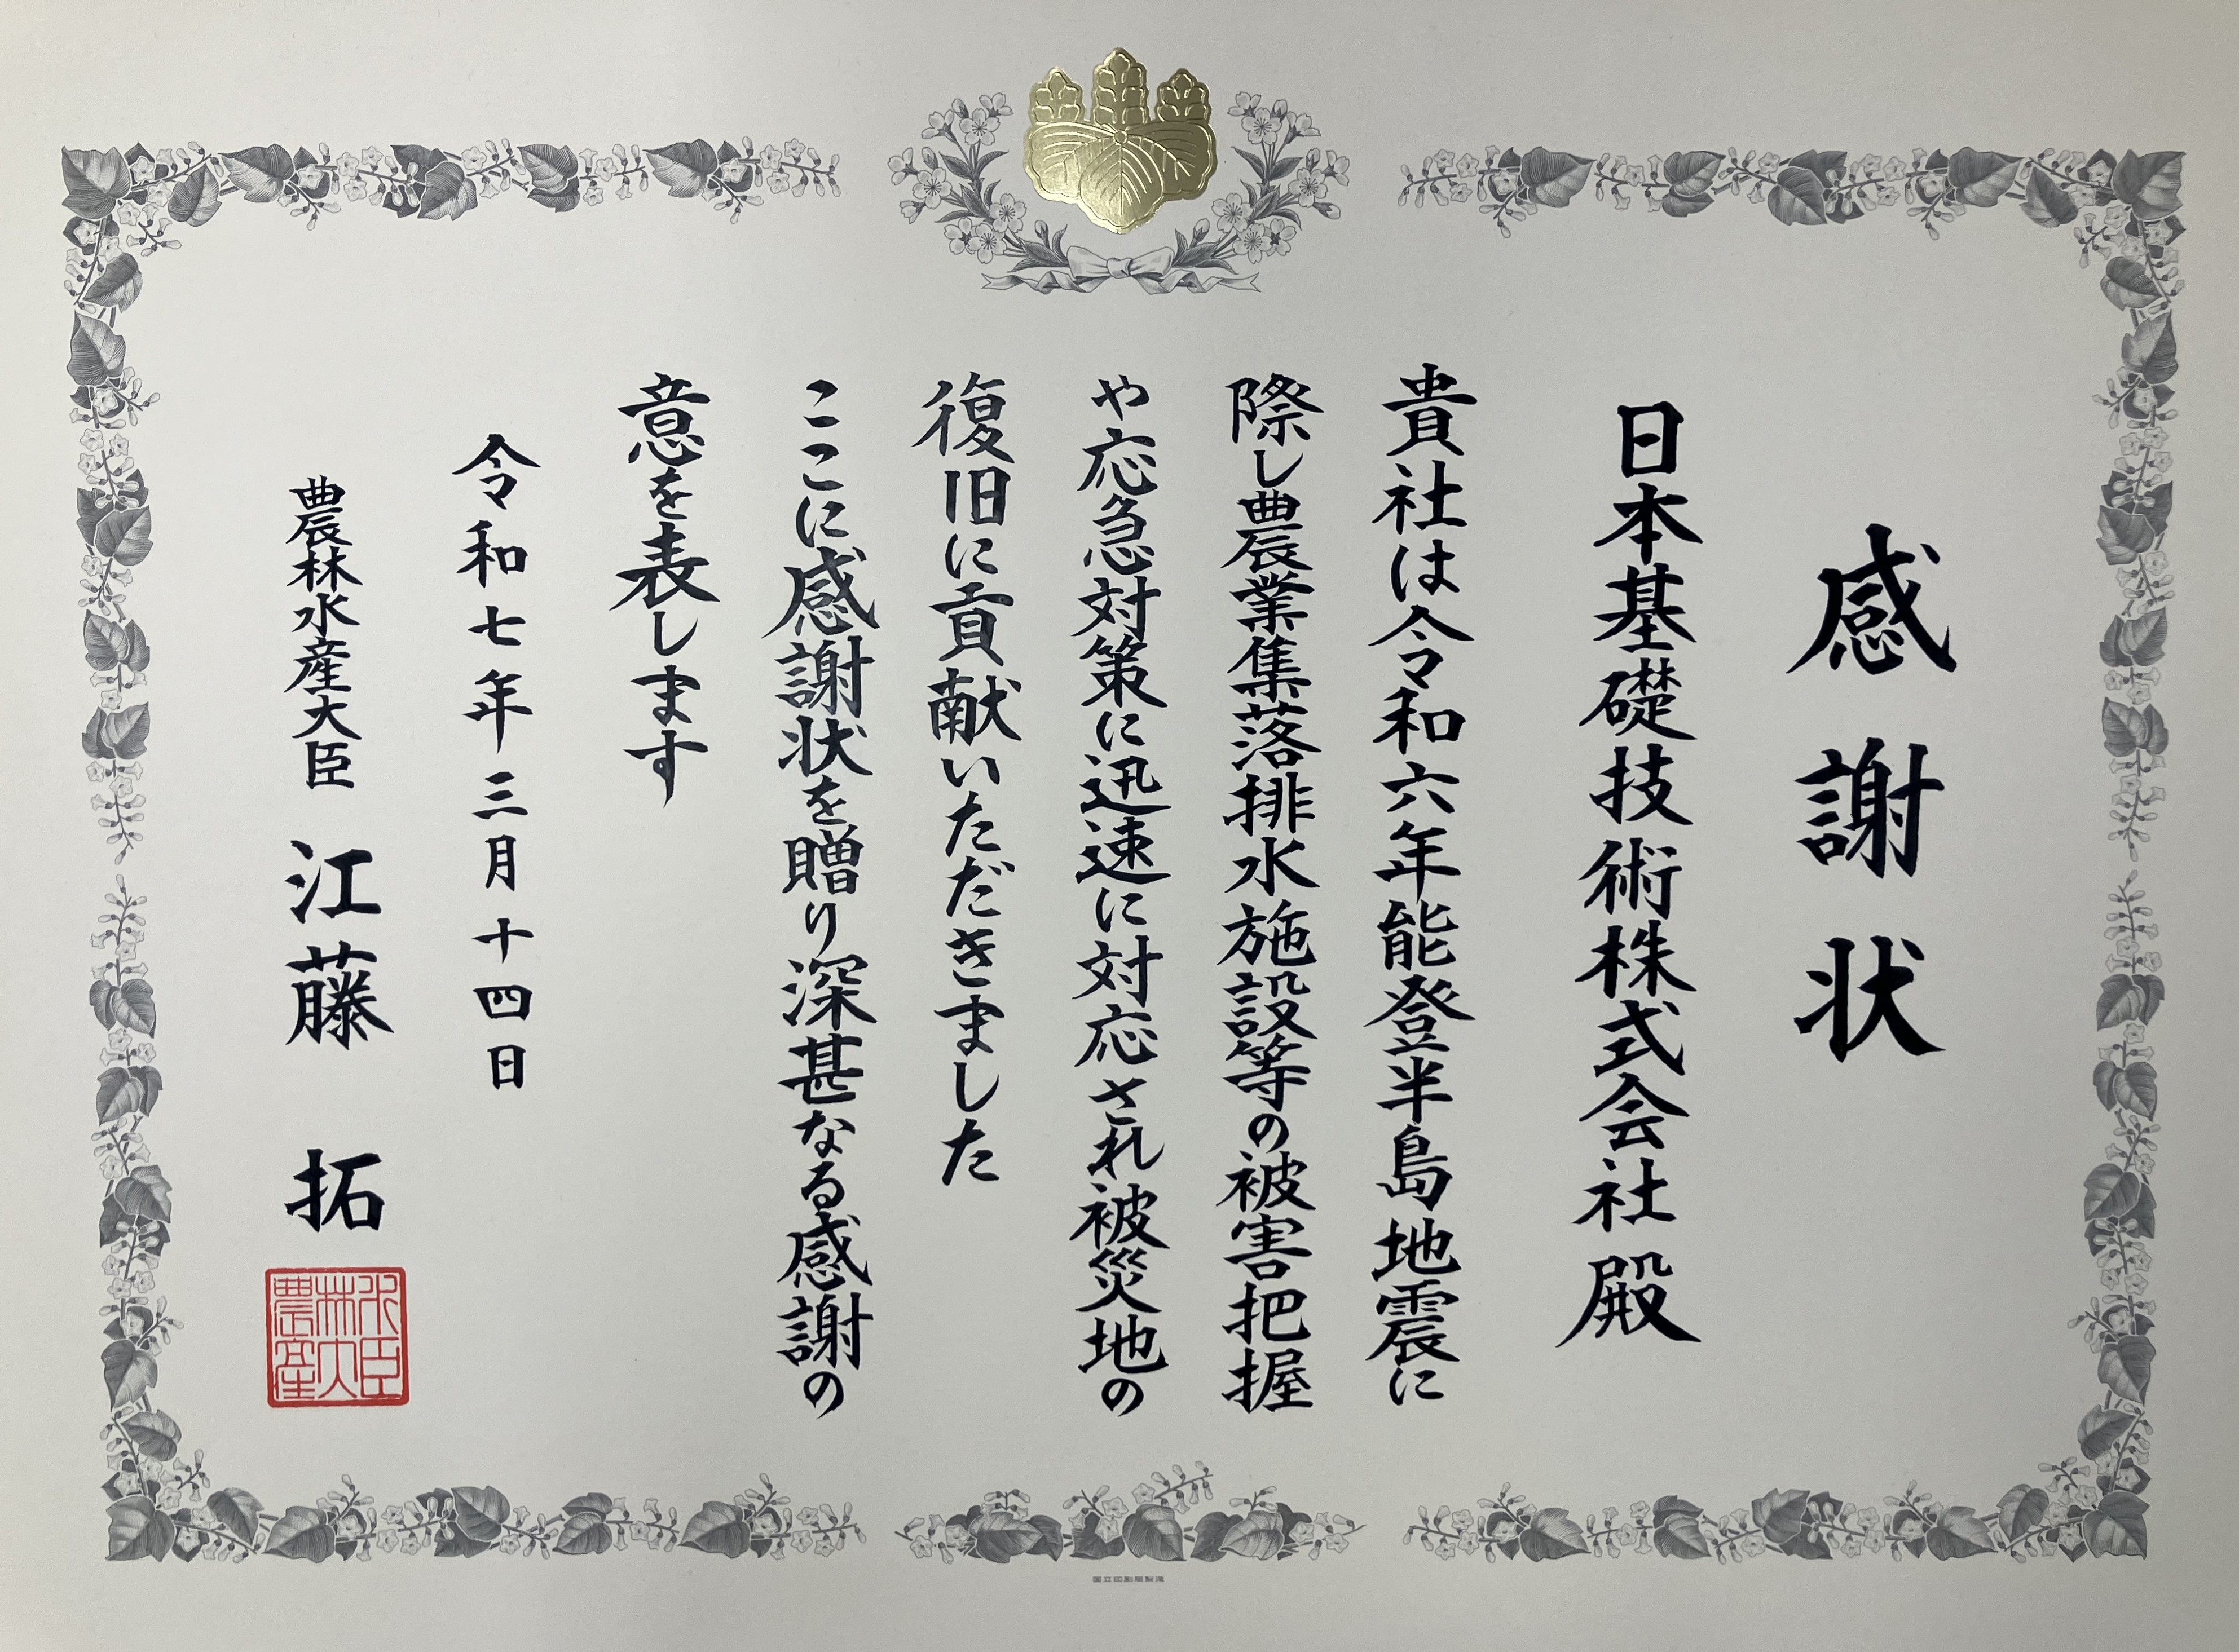 感謝状
日本基礎技術株式会社 殿
貴社は令和六年能登半島地震に
際し農業集落排水施設等の被害把握
や応急対策に迅速に対応され被災地の
復旧に貢献いただきました
ここに感謝状を贈り深甚なる感謝の
意を表します
令和七年三月十四日
農林水産大臣 江藤 拓
農林水産大臣
国立印刷局製造